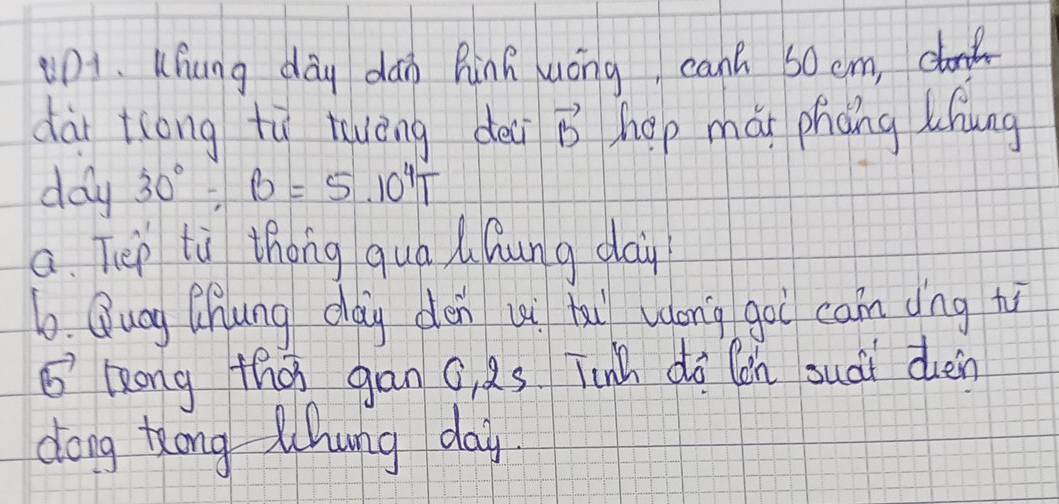 VD1. Khung dây dẫn hình vuông, cạnh 50 cm,
đặt trong từ trường đều B⃗ hợp mặt phẳng khung
dây 30°, B = 5.10⁴T
a. Tiếp từ thông qua khung dây
b. Quay khung dây đến vị trí vuông góc cảm ứng từ
B⃗ trong thời gan 0,2s. Tính độ lớn suất điện
động trong khung dây.